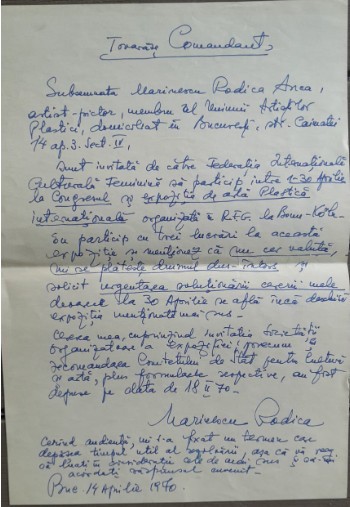 Tovarășe Comandant,
Subsemnata Marinescu Rodica Anca,
artist-pictor, membru al Uniunii Artiștilor
Plastici, domiciliat în București, str. Cainatei
14 ap. 3. Sect. IV,
Sunt invitată de către Federația Internațională
Culturală Feminină să particip între 1-30 Aprilie
la Congresul și expoziția de artă Plastică
internațională organizată în R.F.G. la Bonn-Köln.
Eu particip cu trei lucrări la această
expoziție și menționez că nu cer valută,
mi se plătește drumul dus-întors și
solicit urgentarea soluționării cererii mele
deoarece la 30 Aprilie se află încă deschisă
expoziția menționată mai sus.
Cererea mea, cuprinzînd invitația Societății
organizatoare a Expoziției, precum și
recomandarea Comitetului de Stat pentru Cultură
și artă, plus formularele respective, au fost
depuse pe data de 18 II 70.
Marinescu Rodica
Cerînd audiență, mi s-a fixat un termen care
depășea timpul util al rezolvării, așa că vă rog
să luați în considerație cele de mai sus și să-mi
acordați răspunsul cuvenit.
Buc 14 Aprilie 1970.